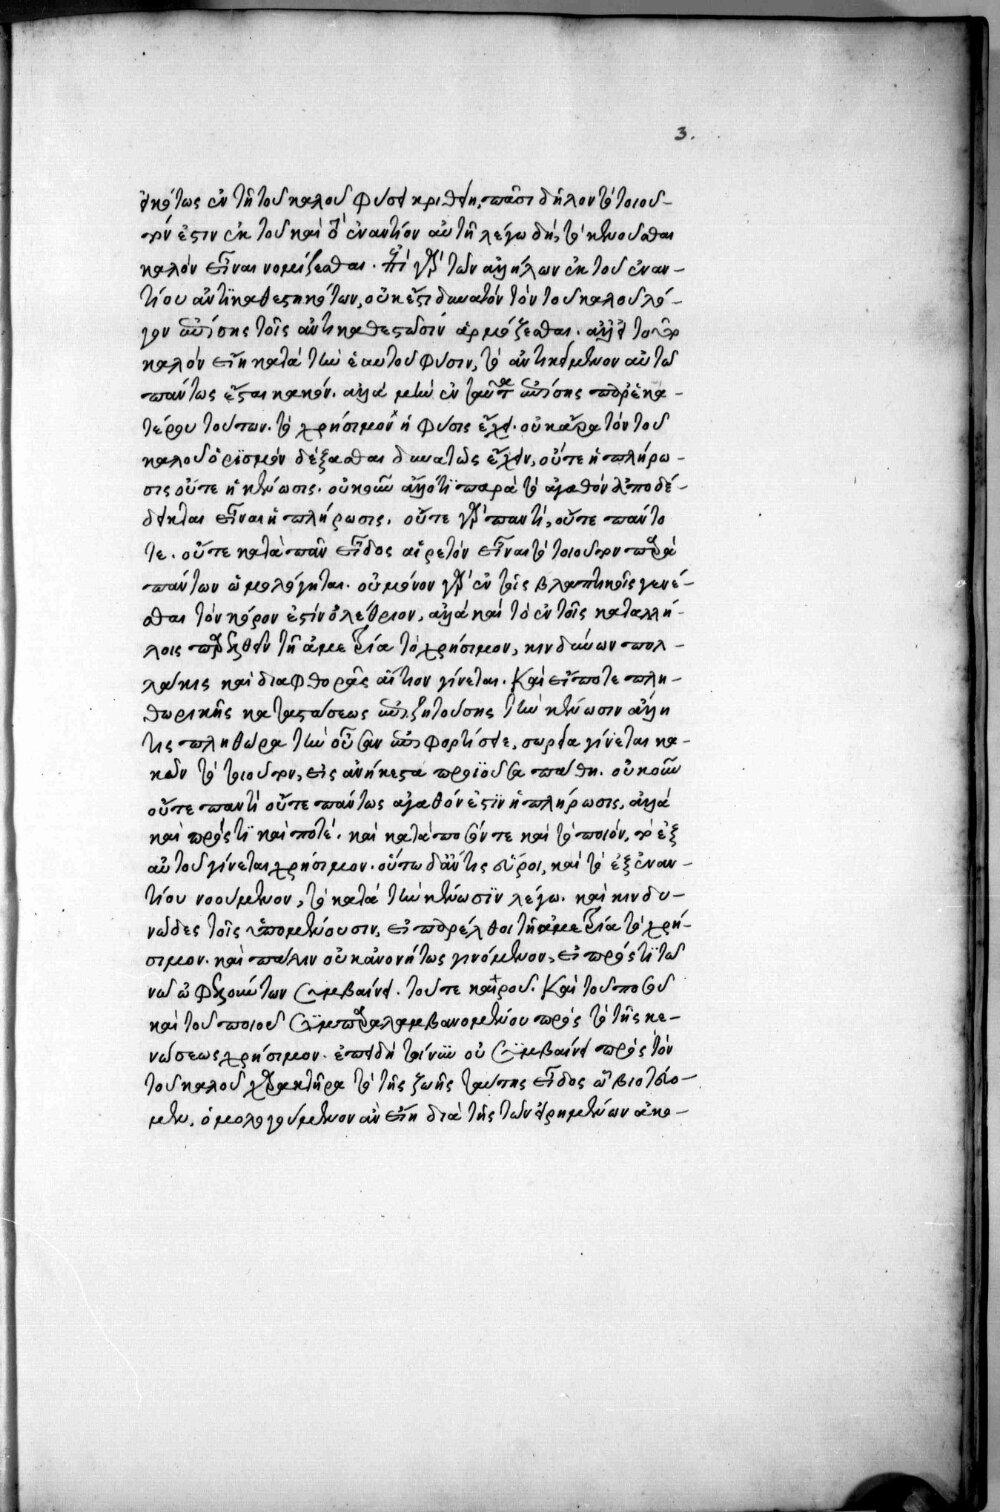 3.
εἰκότως ἐν τῇ τοῦ καλοῦ φύσει κριθείη, πᾶσι δῆλον τὸ τοιοῦ-
τόν ἐστιν ἐκ τοῦ καὶ τὸ ἐναντίον αὐτῇ λέγω δὴ, τὸ κενοῦσθαι
καλὸν εἶναι νομίζεσθαι. ἐπὶ γὰρ τῶν ἀλλήλων ἐκ τοῦ ἐναν-
τίου ἀντικαθεστηκότων, οὐκ ἔστι δυνατὸν τὸν τοῦ καλοῦ λό-
γον ἐπίσης τοῖς ἀντικαθεστῶσιν ἁρμόζεσθαι. ἀλλ' εἰ τόδε
καλὸν εἴη κατὰ τὴν ἑαυτοῦ φύσιν, τὸ ἀντικείμενον αὐτῷ
πάντως ἔσται κακόν. ἀλλὰ μὴν ἐν ταῦτα ἐπίσης πρὸς ἑκα-
τέρου τούτων. τὸ χρήσιμον ἡ φύσις ἔχει. οὐκ ἄρα τὸν τοῦ
καλοῦ ὁρισμὸν δέξασθαι δυνατῶς ἔχειν, οὔτε ἡ πλήρω-
σις οὔτε ἡ κένωσις. οὐκοῦν ἄλλό τι παρὰ τὸ ἀγαθὸν ἀποδέ-
δεικται εἶναι ἡ πλήρωσις. οὔτε γὰρ παντί, οὔτε πάντο
τε. οὔτε κατὰ πᾶν εἶδος αἱρετὸν εἶναι τὸ τοιοῦτον παρὰ
πάντων ὡμολόγηται. οὐ μόνον γὰρ ἐν τοῖς βλαπτικοῖς γενέ-
σθαι τὸν κόρον ἐστὶν ὀλέθριον, ἀλλὰ καὶ τὸ ἐν τοῖς καταλλή-
λοις παρελθεῖν τῇ ἀμετρία τὸ χρήσιμον, κινδύνων πολ-
λάκις καὶ διαφθορᾶς αἴτιον γίνεται. Καὶ εἴποτε πλη-
θωρικῆς καταστάσεως ἐπιζητούσης τὴν κένωσιν ἄλλη
τις πληθώρα τὴν οὖσαν ἐπιφορτίσειε, σωρεία γίνεται κα-
κῶν τὸ τοιοῦτον, εἰς ἀνήκεστα προϊοῦσα πάθη. οὐκοῦν
οὔτε παντὶ οὔτε πάντως ἀγαθόν ἐστιν ἡ πλήρωσις, ἀλλὰ
καὶ πρός τι καὶ ποτέ. καὶ κατὰ ποσόν τε καὶ τὸ ποιόν, τὸ ἐξ
αὐτοῦ γίνεται χρήσιμον. οὕτω δ' ἄν τις εὕροι, καὶ τὸ ἐξ ἐναν-
τίου νοούμενον, τὸ κατὰ τὴν κένωσιν λέγω. καὶ κινδυ-
νῶδες τοῖς ὑπομένουσιν, εἰ παρέλθοι τῇ ἀμετρία τὸ χρή-
σιμον. καὶ πάλιν οὐκ ἀνονήτως γινόμενον, εἰ πρός τι τῶ
νω ὠφελούντων συμβαίνει. τοῦ τε καιροῦ. Καὶ τοῦ ποσοῦ
καὶ τοῦ ποιοῦ συμπαραλαμβανομένου πρὸς τὸ τῆς κε-
νώσεως χρήσιμον. ἐπειδὴ τοίνυν οὐ συμβαίνει πρὸς τὸν
τοῦ καλοῦ χαρακτῆρα τὸ τῆς ζωῆς ταύτης εἶδος ὃ βιοτεύο-
μεν, ὁμολογούμενον ἂν εἴη διὰ τῆς τῶν εἰρημένων ἀκο-